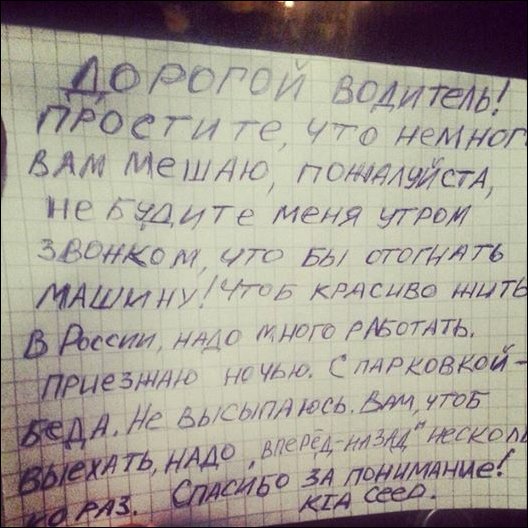 Дорогой водитель!
Простите, что немног
вам мешаю, пожалуйста,
не будите меня утром
звонком, что бы отогнать
машину! Чтоб красиво жить
в России, надо много работать.
Приезжаю ночью. С парковкой -
беда. Не высыпаюсь. Вам, чтоб
выехать, надо „вперёд-назад" несколь
ко раз. Спасибо за понимание!
KIA CEED.